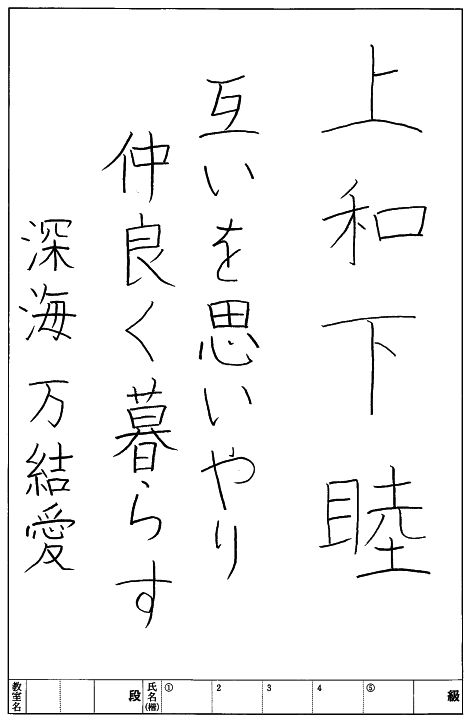 上和下睦
互いを思いやり
仲良く暮らす
深海 万結愛
教室名
段
氏名(楷)
① 2 3 4 ⑤
級